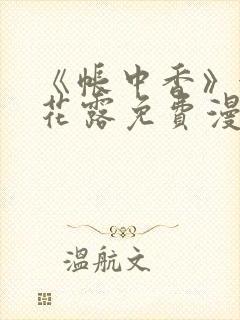 《帐中香》
花露免费漫
温航文